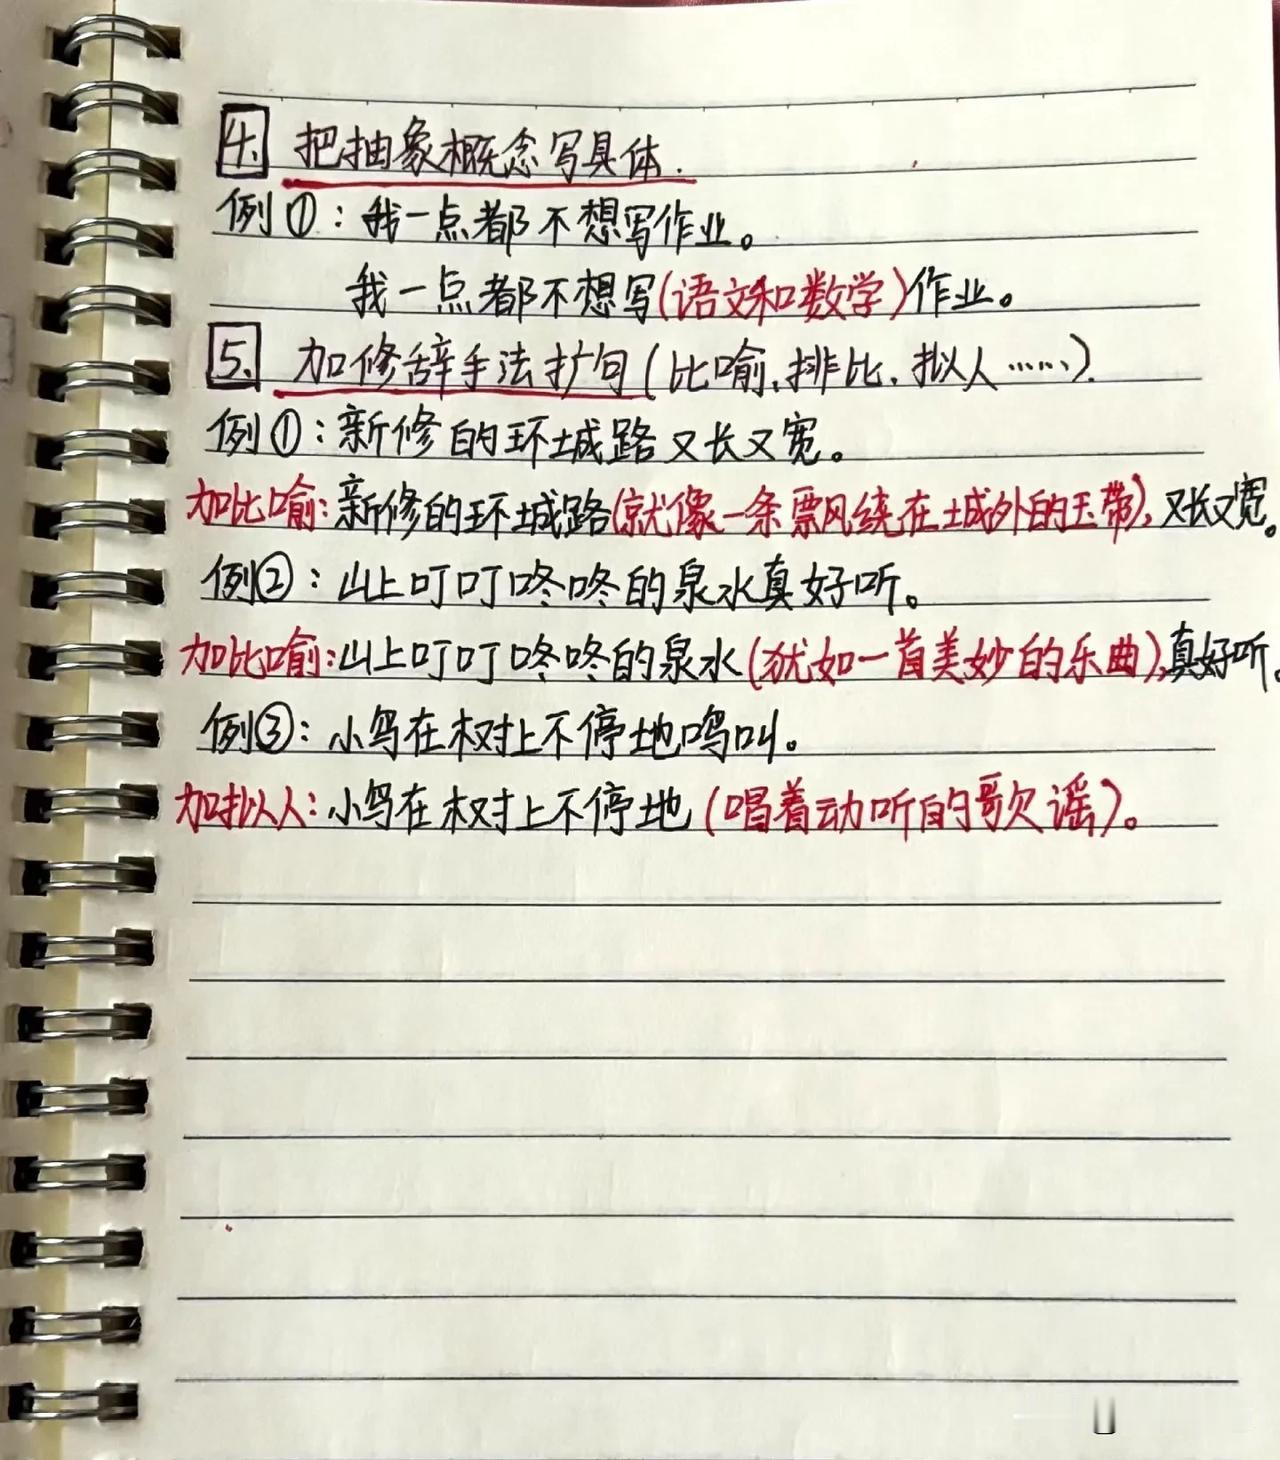 4. 把抽象概念写具体.
例①：我一点都不想写作业。
我一点都不想写(语文和数学)作业。
5. 加修辞手法扩句(比喻、排比、拟人……).
例①：新修的环城路又长又宽。
加比喻：新修的环城路(就像一条飘绕在城外的玉带)，又长又宽。
例②：山上叮叮咚咚的泉水真好听。
加比喻：山上叮叮咚咚的泉水(犹如一首美妙的乐曲)，真好听。
例③：小鸟在树上不停地鸣叫。
加拟人：小鸟在树上不停地(唱着动听的歌谣)。